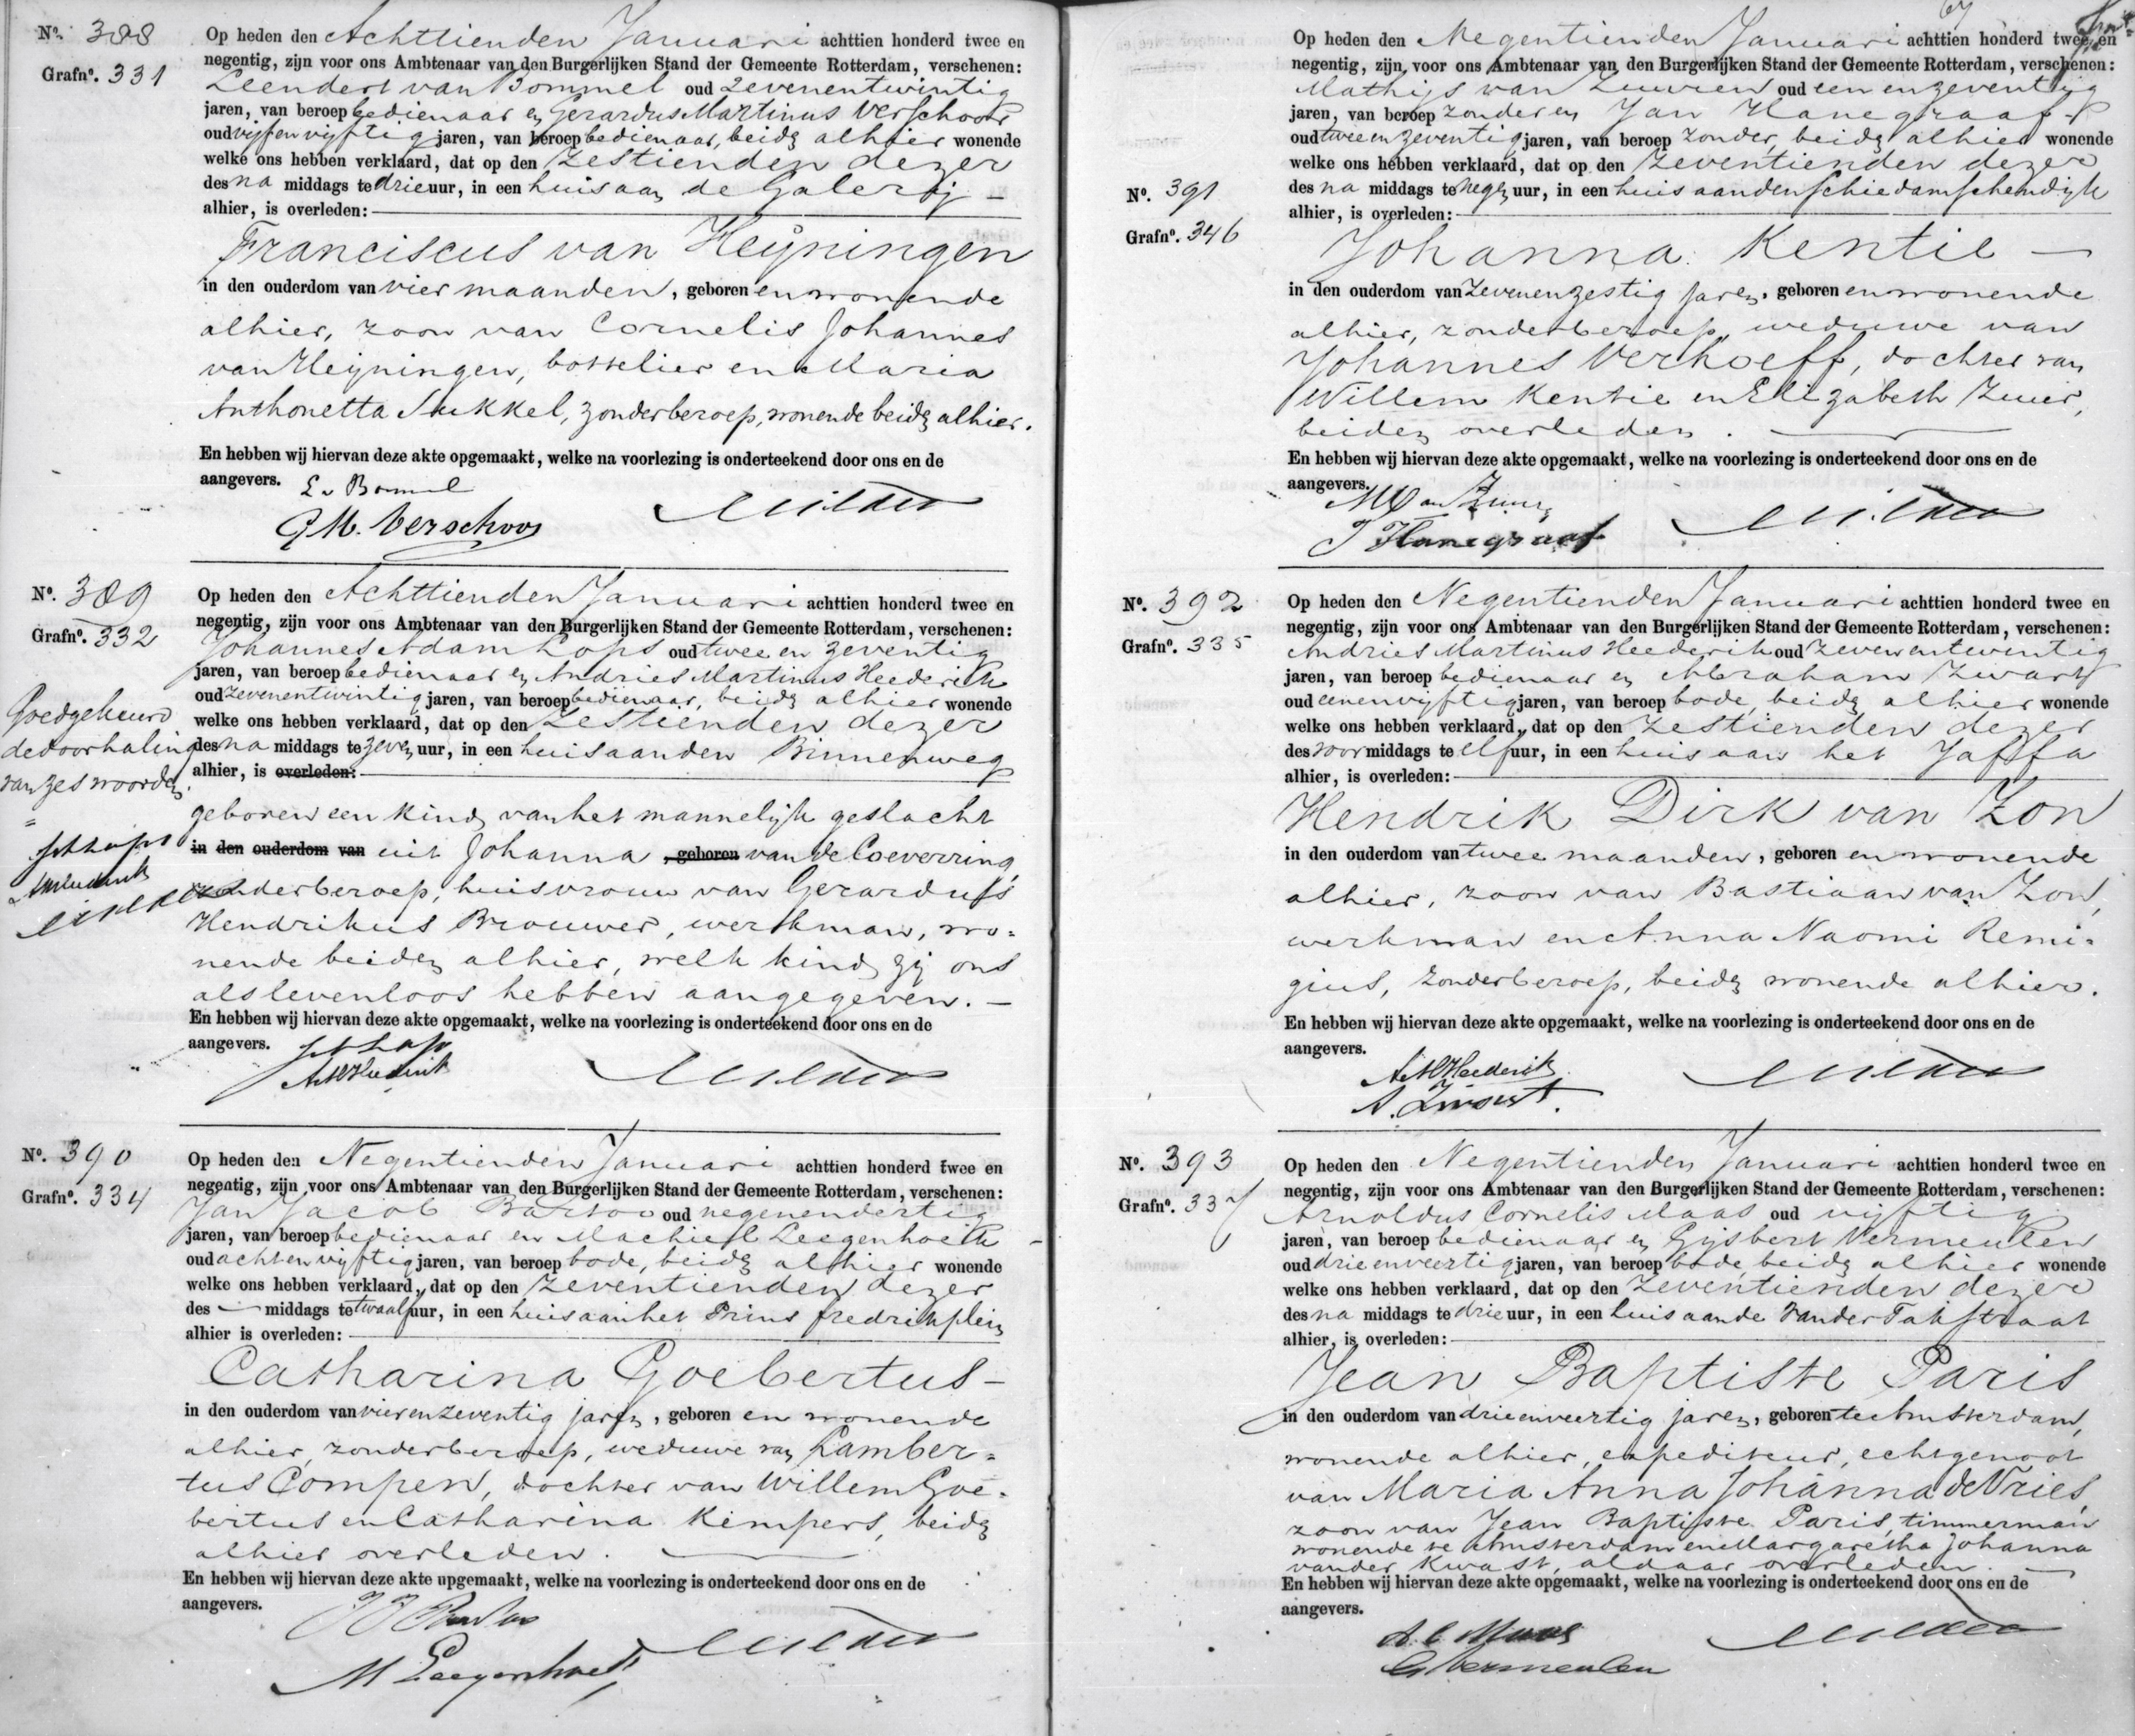 No. 388
Grafno. 331
Op heden den Achttienden Januari achttien honderd twee en
negentig, zijn voor ons Ambtenaar van den Burgerlijken Stand der Gemeente Rotterdam, verschenen:
Leendert van Bommel oud Zevenentwintig
jaren, van beroep bedienaar en Gerardus Martinus Verschoor
oud vijfenvijftig jaren, van beroep bedienaar, beiden alhier wonende
welke ons hebben verklaard, dat op den Zestienden dezer
des na middags te drie uur, in een huis aan de Galerij
alhier, is overleden:
Franciscus van Heijningen
in den ouderdom van vier maanden, geboren en wonende
alhier, zoon van Cornelis Johannes
van Heijningen, bottelier en Maria
Anthonetta Sukkel, zonder beroep, wonende beiden alhier.
En hebben wij hiervan deze akte opgemaakt, welke na voorlezing is onderteekend door ons en de
aangevers. L v Bommel
G M. Verschoor
No. 389
Grafno. 332
Op heden den Achttienden Januari achttien honderd twee en
negentig, zijn voor ons Ambtenaar van den Burgerlijken Stand der Gemeente Rotterdam, verschenen:
Johannes Adam Lops oud twee en zeventig
jaren, van beroep bedienaar en Andries Martinus Heederik
oud zevenentwintig jaren, van beroep bedienaar, beiden alhier wonende
welke ons hebben verklaard, dat op den Zestienden dezer
des na middags te zeven uur, in een huis aan den Binnenweg
alhier, is overleden:
geboren een kind van het mannelijk geslacht
in den ouderdom van uit Johanna , geboren van de Coeverring,
zonder beroep, huisvrouw van Gerardus
Hendrikus Brouwer, werkman, wo=
nende beiden alhier, welk kind zij ons
als levenloos hebben aangegeven. —
En hebben wij hiervan deze akte opgemaakt, welke na voorlezing is onderteekend door ons en de
aangevers.
AMHeederik
Goedgekeurd
de doorhaling
van zes woorden.
No. 390
Grafno. 334
Op heden den Negentienden Januari achttien honderd twee en
negentig, zijn voor ons Ambtenaar van den Burgerlijken Stand der Gemeente Rotterdam, verschenen:
Jan Jacob Bartoo oud negenendertig
jaren, van beroep bedienaar en Machiel Leegenhoek
oud achtenvijftig jaren, van beroep bode, beiden alhier wonende
welke ons hebben verklaard, dat op den Zeventienden dezer
des — middags te twaalf uur, in een huis aan het Prins Fredrikplein
alhier is overleden:
Catharina Goebertus —
in den ouderdom van vierenzeventig jaren, geboren en wonende
alhier, zonder beroep, weduwe van Lamber=
tus Compen, dochter van Willem Goe=
bertus en Catharina Kempers, beiden
alhier overleden.
En hebben wij hiervan deze akte opgemaakt, welke na voorlezing is onderteekend door ons en de
aangevers.
M Leegenhoek
No. 391
Grafno. 346
Op heden den Negentienden Januari achttien honderd twee en
negentig, zijn voor ons Ambtenaar van den Burgerlijken Stand der Gemeente Rotterdam, verschenen:
Mathijs van Zuuren oud een en zeventig
jaren, van beroep zonder en Jan Hanegraaf
oud twee en zeventig jaren, van beroep zonder, beiden alhier wonende
welke ons hebben verklaard, dat op den Zeventienden dezer
des na middags te negen uur, in een huis aan den Schiedamschendijk
alhier, is overleden:
Johanna Kentie —
in den ouderdom van Zevenenzestig jaren, geboren en wonende
alhier, zonder beroep, weduwe van
Johannes Verhoeff, dochter van
Willem Kentie en Elizabeth Zuur,
beiden overleden.
En hebben wij hiervan deze akte opgemaakt, welke na voorlezing is onderteekend door ons en de
aangevers.
J Hanegraaf
No. 392
Grafno. 335
Op heden den Negentienden Januari achttien honderd twee en
negentig, zijn voor ons Ambtenaar van den Burgerlijken Stand der Gemeente Rotterdam, verschenen:
Andries Martinus Heederik oud zevenentwintig
jaren, van beroep bedienaar en Abraham Zwart
oud eenenvijftig jaren, van beroep bode, beiden alhier wonende
welke ons hebben verklaard, dat op den Zestienden dezer
des voor middags te elf uur, in een huis aan het Jaffa
alhier, is overleden:
Hendrik Dirk van Zon
in den ouderdom van twee maanden, geboren en wonende
alhier, zoon van Bastiaan van Zon,
werkman en Anna Naomi Remi=
gius, zonder beroep, beiden wonende alhier.
En hebben wij hiervan deze akte opgemaakt, welke na voorlezing is onderteekend door ons en de
aangevers.
A M Heederik.
No. 393
Grafno. 337
Op heden den Negentienden Januari achttien honderd twee en
negentig, zijn voor ons Ambtenaar van den Burgerlijken Stand der Gemeente Rotterdam, verschenen:
Arnoldus Cornelis Maas oud vijftig
jaren, van beroep bedienaar en Gijsbert Vermeulen
oud drieenveertig jaren, van beroep bode, beiden alhier wonende
welke ons hebben verklaard, dat op den Zeventienden dezer
des na middags te drie uur, in een huis aan de van der Takstraat
alhier, is overleden:
Jean Baptiste Paris
in den ouderdom van drieenveertig jaren, geboren te Amsterdam,
wonende alhier, expediteur, echtgenoot
van Maria Anna Johanna de Vries,
zoon van Jean Baptiste Paris, timmerman
wonende te Amsterdam en Margaretha Johanna
van der Kwast, aldaar overleden.
En hebben wij hiervan deze akte opgemaakt, welke na voorlezing is onderteekend door ons en de
aangevers.
A. C Maas
G Vermeulen